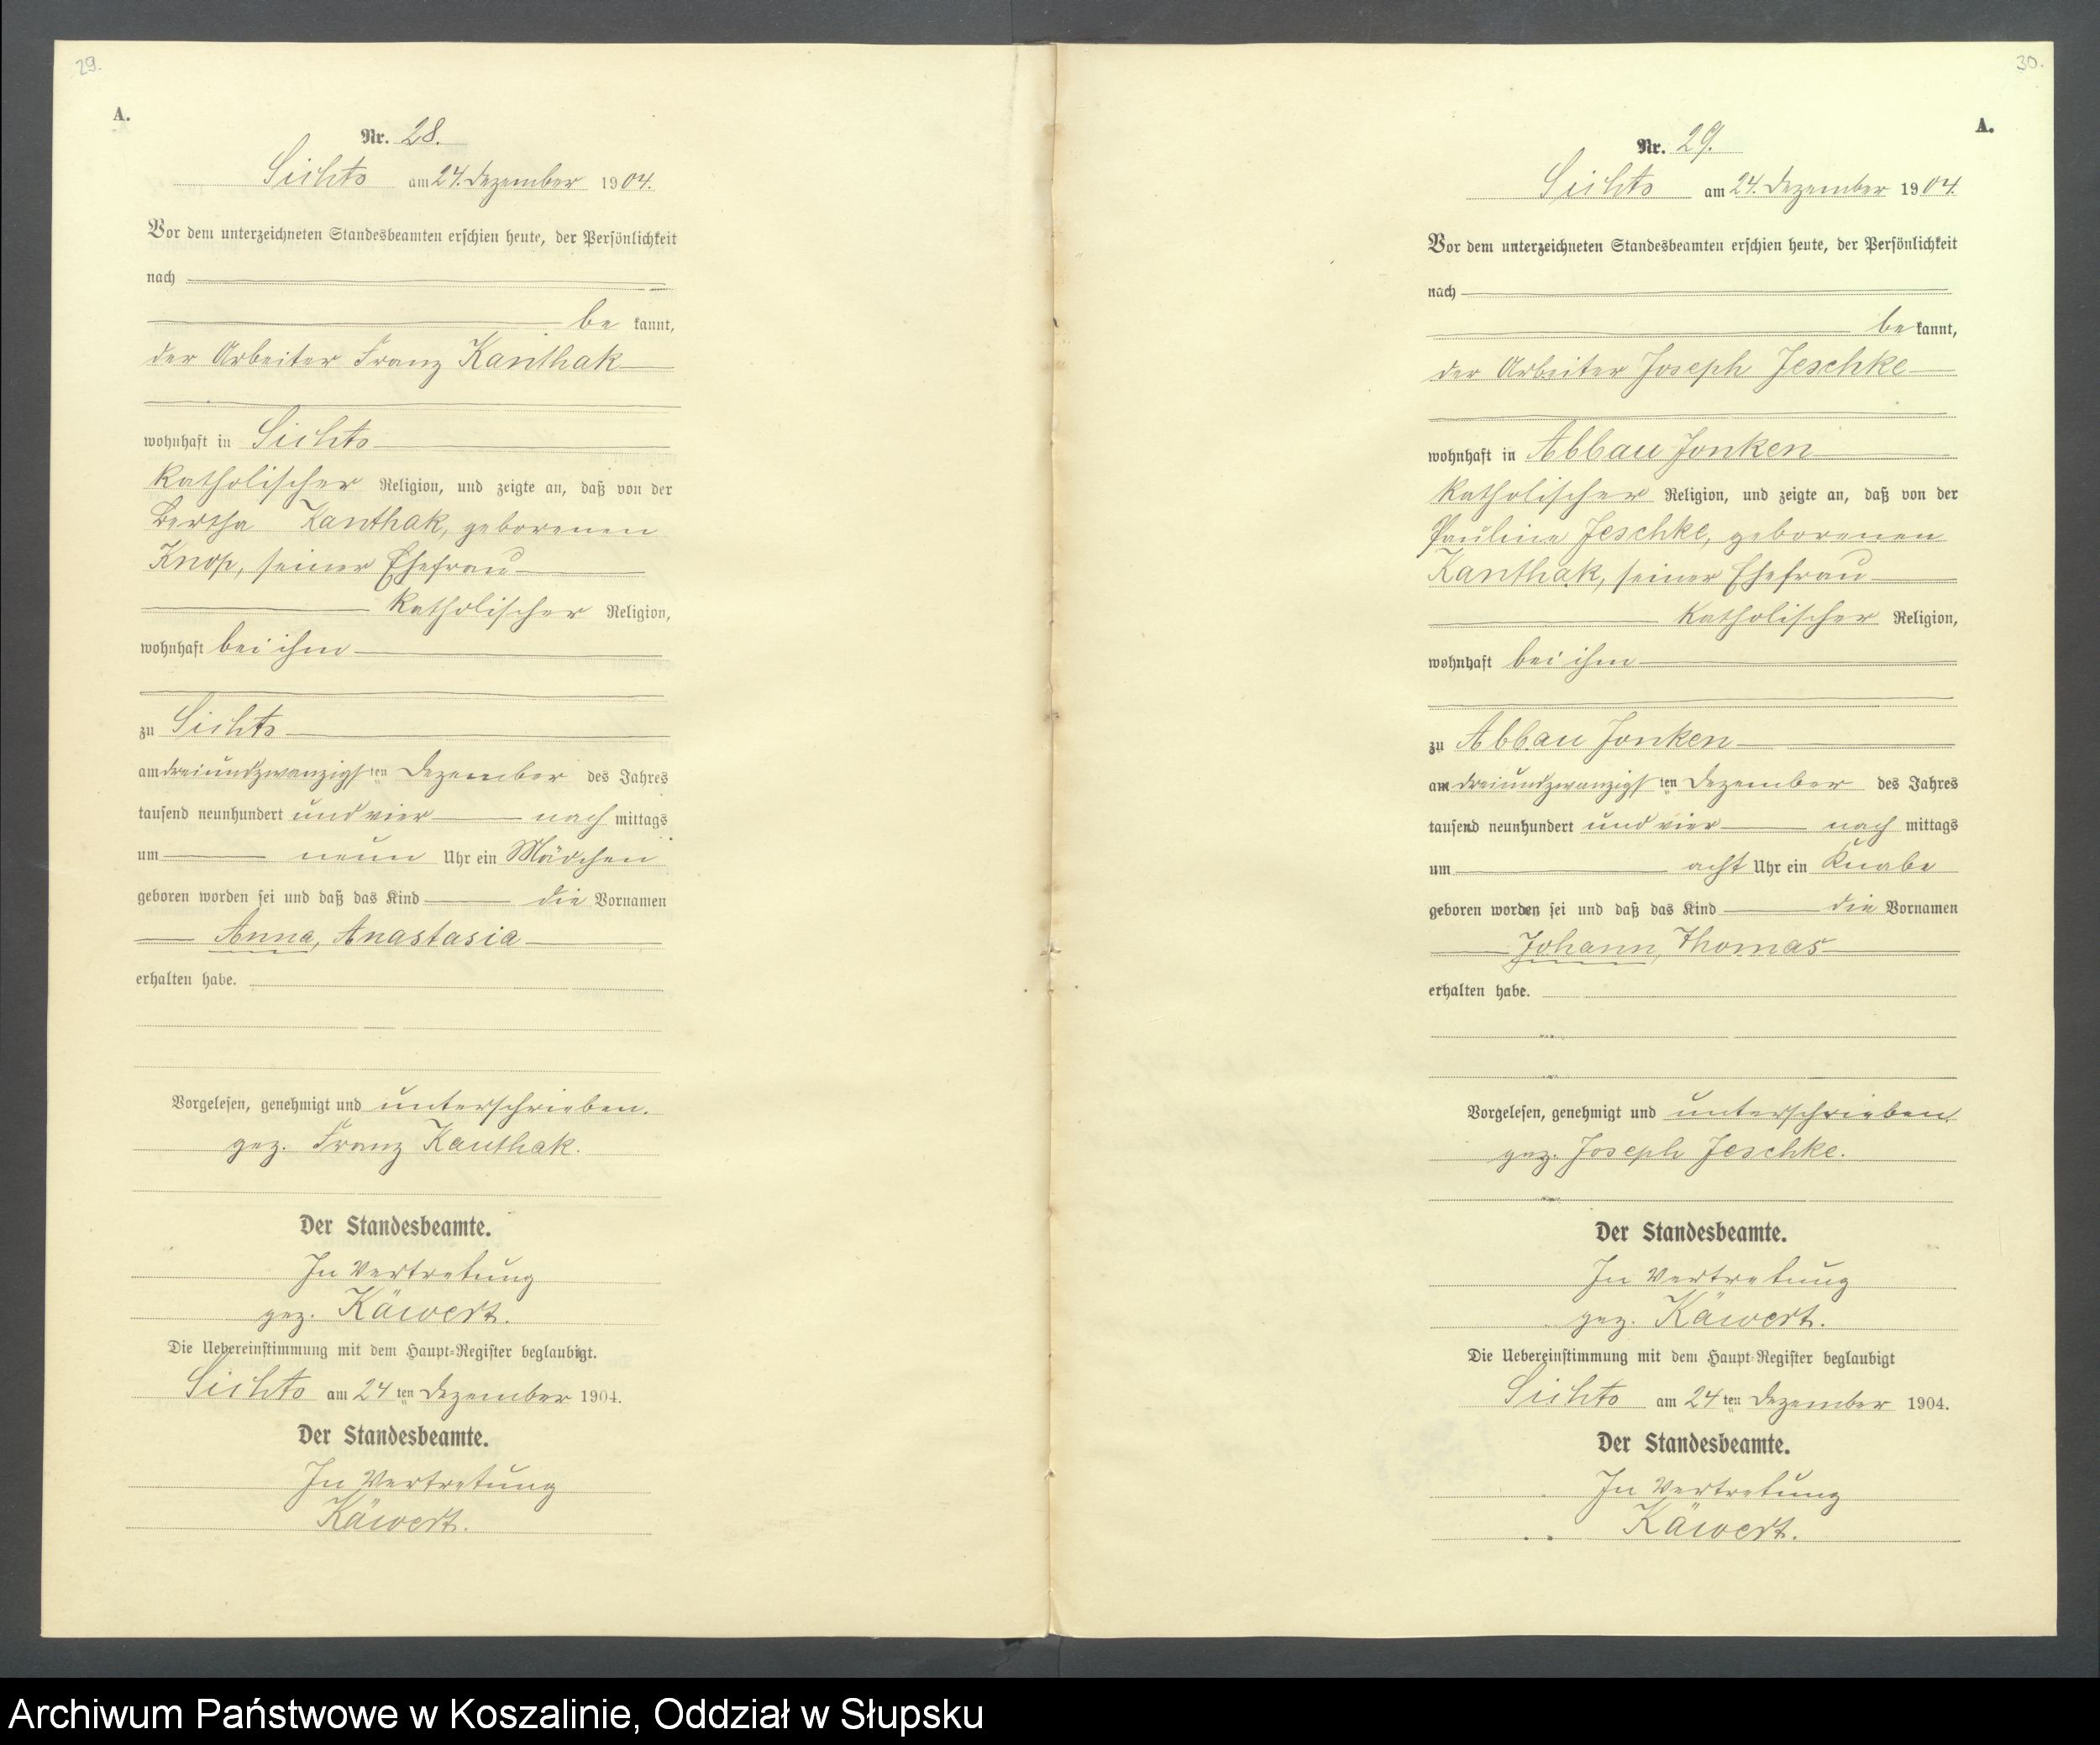 29.
A.
Nr. 28.
Sichts am 24. Dezember 1904.
Vor dem unterzeichneten Standesbeamten erschien heute, der Persönlichkeit
nach
be kannt,
der Arbeiter Franz Kanthak
wohnhaft in Sichts
katholischer Religion, und zeigte an, daß von der
Bertha Kanthak, geborenen
Knop, seiner Ehefrau
katholischer Religion,
wohnhaft bei ihm
zu Sichts
am dreiundzwanzigsten Dezember des Jahres
tausend neunhundert und vier nach mittags
um neun Uhr ein Mädchen
geboren worden sei und daß das Kind die Vornamen
Anna, Anastasia
erhalten habe.
Vorgelesen, genehmigt und unterschrieben.
gez. Franz Kanthak.
Der Standesbeamte.
In Vertretung
gez. Käwert.
Die Uebereinstimmung mit dem Haupt-Register beglaubigt.
Sichts am 24 ten Dezember 1904.
Der Standesbeamte.
In Vertretung
Käwert.
30.
A.
Nr. 29.
Sichts am 24. Dezember 1904.
Vor dem unterzeichneten Standesbeamten erschien heute, der Persönlichkeit
nach
be kannt,
der Arbeiter Joseph Jeschke
wohnhaft in Abbau Jonken
katholischer Religion, und zeigte an, daß von der
Pauline Jeschke, geborenen
Kanthak, seiner Ehefrau
katholischer Religion,
wohnhaft bei ihm
zu Abbau Jonken
am dreiundzwanzigsten Dezember des Jahres
tausend neunhundert und vier nach mittags
um acht Uhr ein Knabe
geboren worden sei und daß das Kind die Vornamen
Johann, Thomas
erhalten habe.
Vorgelesen, genehmigt und unterschrieben.
gez. Joseph Jeschke.
Der Standesbeamte.
In Vertretung
gez. Käwert.
Die Uebereinstimmung mit dem Haupt-Register beglaubigt
Sichts am 24 ten Dezember 1904.
Der Standesbeamte.
In Vertretung
Käwert.
Archiwum Państwowe w Koszalinie, Oddział w Słupsku